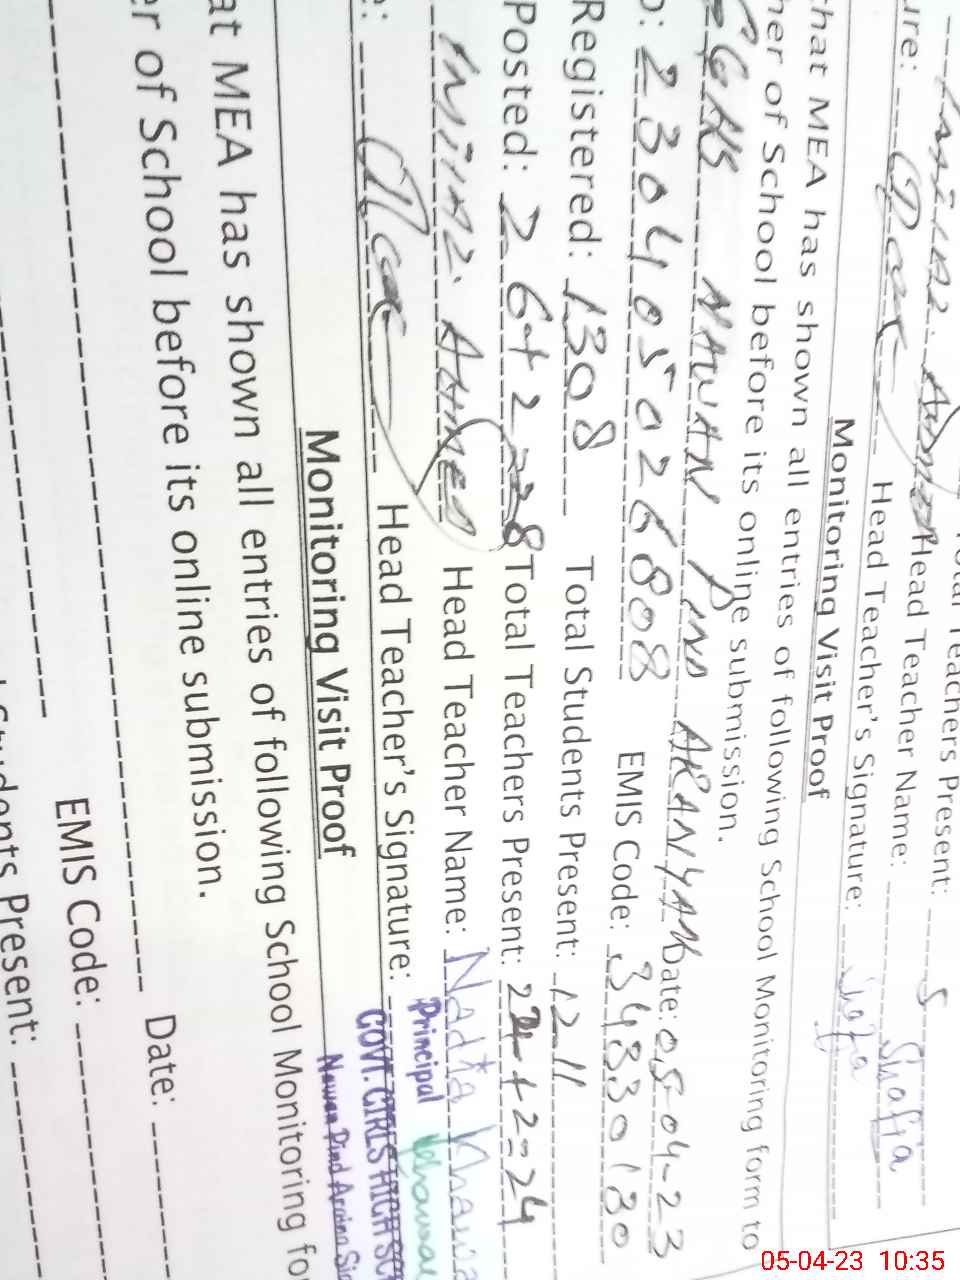 Total Teachers Present: 5
Head Teacher Name: Shafia
ure: Head Teacher's Signature:
Monitoring Visit Proof
that MEA has shown all entries of following School Monitoring form to
her of School before its online submission.
GGHS NAWAN PIND ARAIYAN Date: 05-04-23
o: 230405026808 EMIS Code: 34330130
Registered: 1308 Total Students Present: 1211
Posted: 26+2=28 Total Teachers Present: 22+2=24
AHMED Head Teacher Name: Nadia
e: Head Teacher's Signature: Principal
GOVT. GIRLS HIGH SC
Monitoring Visit Proof Nawan Pind
at MEA has shown all entries of following School Monitoring fo
er of School before its online submission.
Date:
EMIS Code:
Students Present:
05-04-23 10:35